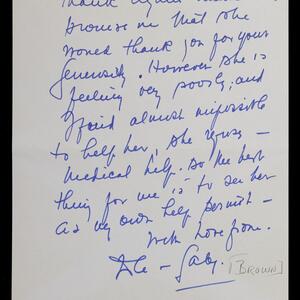 Thank
promise me that she
would thank you for your
generosity. However she is
feeling very poorly, and
I find almost impossible
to help her, she refuse –
medical help. So the best
thing for me is to see her
as my own help permit –
With love from.
– Gaby. [BROWN]